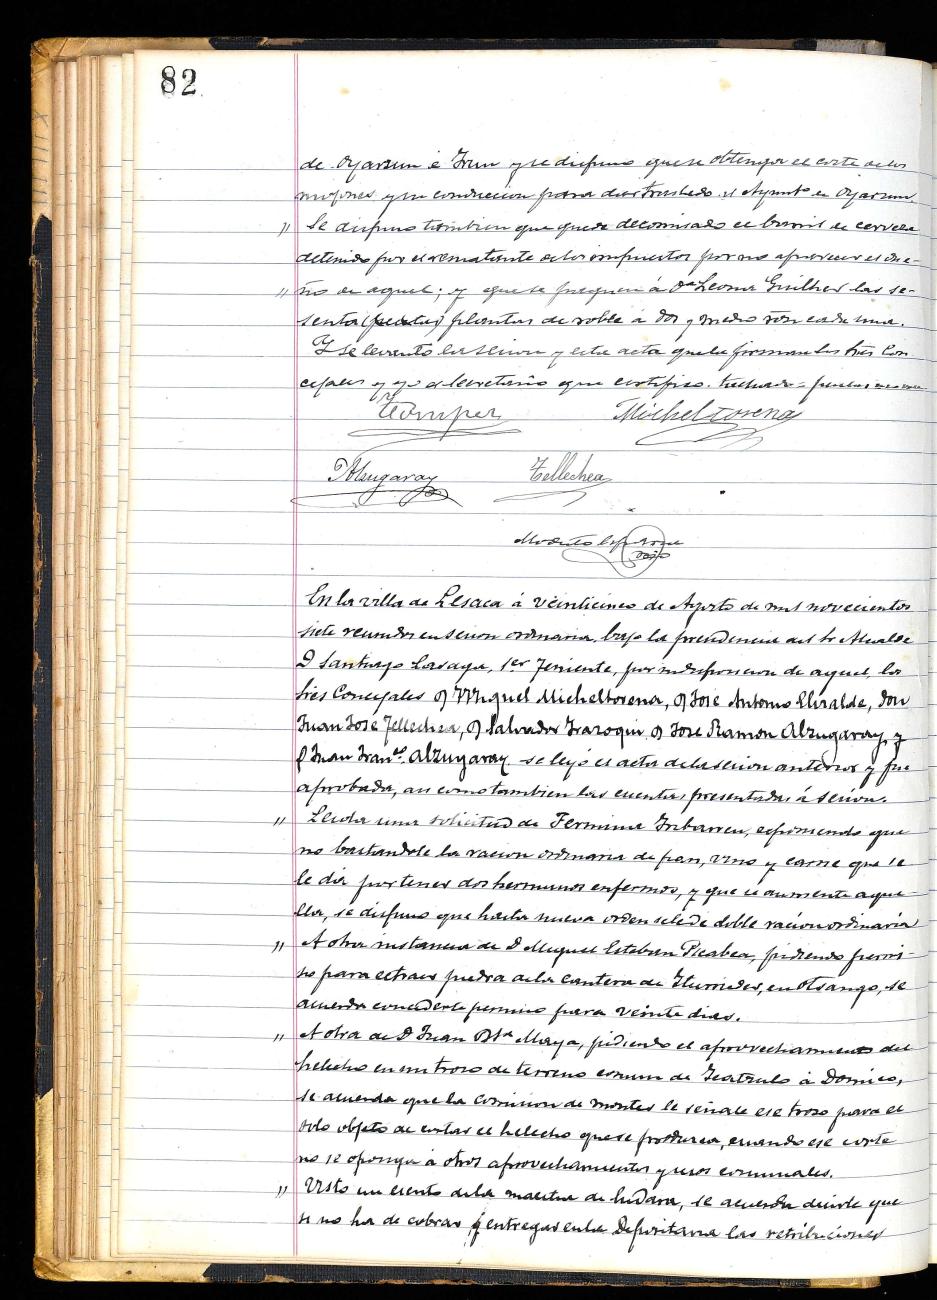 82
de Oyarzun é Irun y se dispuso que se obtenga el coste de los
mojones y su conducion para dar traslado al Aynto de Oyarzun.
" Se dispuso tambien que quede decomisado el barril de cerveza
detenido por el rematante de los impuestos por no aparecer el due-
" ño de aquel; y que se paguen á Dª Leona Guilher las se-
senta (pesetas) plantas de roble á dos y medio rôn cada una.
Y se levantó la sesion y esta acta que la firman los tres Con
cejales y yo el Secretario que certifico. tachado = pesetas
Micheltorena
Alzugaray Tellechea
Modesto
En la villa de Lesaca á veinticinco de Agosto de mil novecientos
siete reunidos en sesion ordinaria, bajo la presidencia del Sr Alcalde
D Santiago Lasaga, 1er Teniente, por indisposicion de aquel, los
tres Concejales D Miguel Micheltorena, D José Antonio Elizalde, Don
Juan José Tellechea, D Salvador Irazoqui D José Ramon Alzugaray, y
D Juan Franco. Alzugaray se leyó el acta de la sesion anterior y fue
aprobada, asi como tambien las cuentas presentadas á sesion.
" Leida una solicitud de Fermina Iribarren, esponiendo que
no bastandole la racion ordinaria de pan, vino y carne que se
le dá por tener dos hermanos enfermos, y que se aumente aque-
lla, se dispuso que hasta nueva orden se le dé doble racion ordinaria
" A otra instancia de D Miguel Esteban Picabea, pidiendo permi-
so para estraer piedra de la cantera de Iturriedes, en Otsango, se
acuerda concederle permiso para veinte dias.
" A otra de D Juan Bta Maya, pidiendo el aprovechamiento del
helecho en un trozo de terreno comun de á Domico,
se acuerda que la comision de montes le señale ese trozo para el
solo objeto de cortar el helecho que se produzca, cuando ese corte
no se oponga á otros aprovechamientos y usos comunales.
" Visto un escrito de la maestra de hudara, se acuerda decirle que
si no ha de cobrar y entregar en la Depositaria las retribuciones